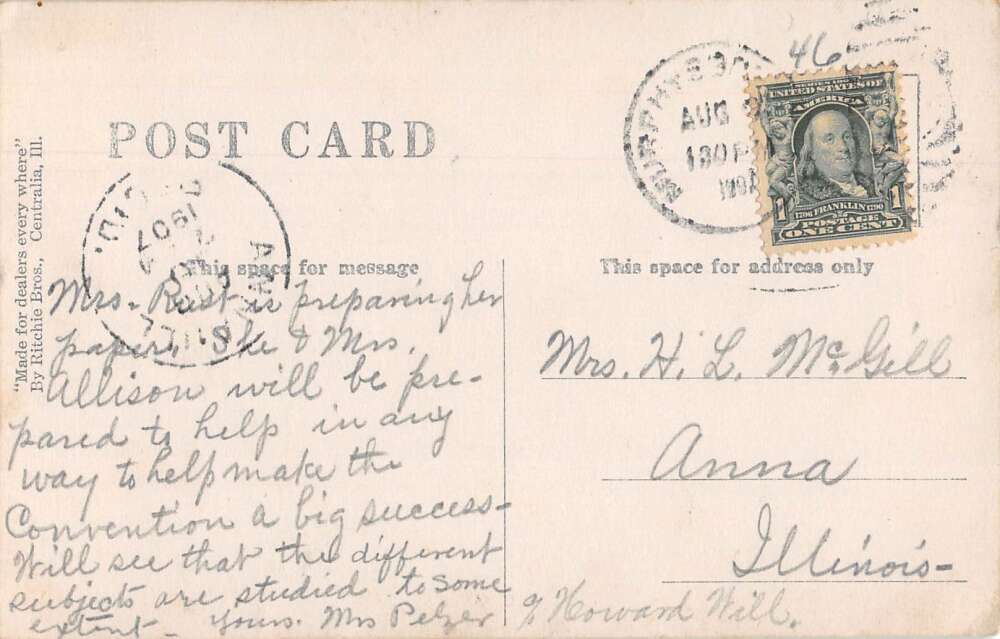 "Made for dealers every where"
By Ritchie Bros., Centralia, Ill.
POST CARD
This space for message
This space for address only
MURPHYSBO
AUG
130 P
190
46
SERIES 1902
UNITED STATES OF
AMERICA
1
1706 FRANKLIN 1790
POSTAGE
ONE CENT
1
ANNA
REC'D.
1907
ILL.
Mrs. Rust is preparing her
paper. She & Mrs.
Allison will be pre-
pared to help in any
way to help make the
Convention a big success-
Will see that the different
subjects are studied to some
extent - Yours. Mrs Pelzer
Mrs. H. L. McGill
Anna
Illinois-
c/o Howard Will.